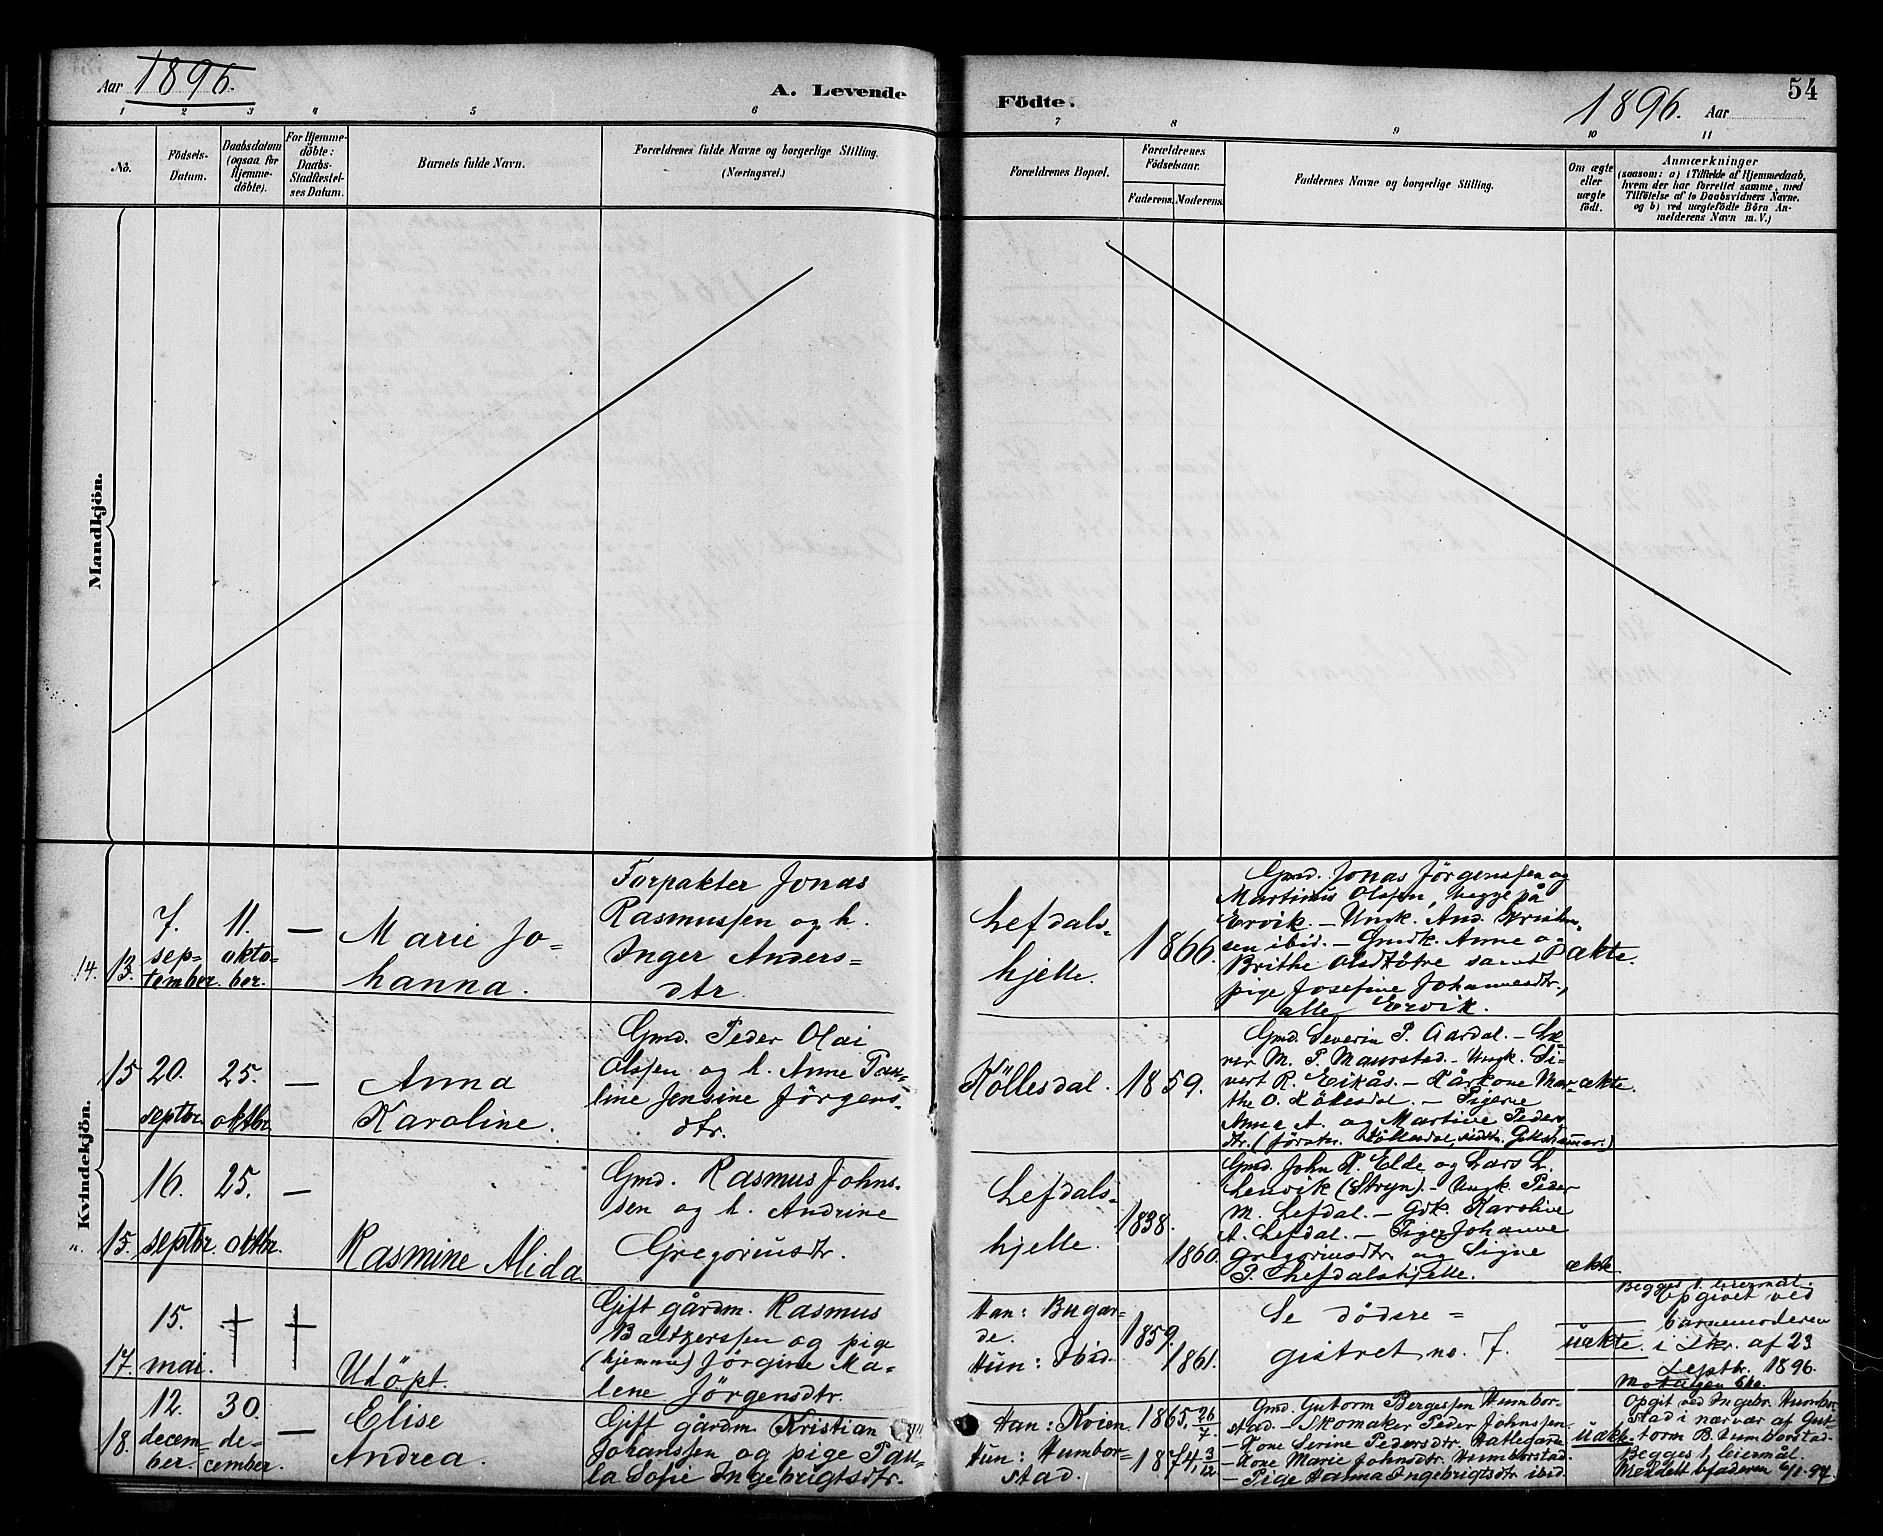 Aar 1896.
A. Levende
Födte.
1896. Aar
54
1 2 3 4 5 6 7 8 9 10 11
No.
Födsels-
Datum.
Daabsdatum
(ogsaa for
Hjemme-
döbte).
For Hjemme-
döbte:
Daabs-
Stadfæstel-
ses Datum.
Barnets fulde Navn.
Forældrenes fulde Navne og borgerlige Stilling.
(Næringsvei.)
Forældrenes Bopæl.
Forældrenes
Födselsaar.
Faderens. Moderens.
Faddernes Navne og borgerlige Stilling.
Om ægte
eller
uægte
födt.
Anmærkninger
(saasom: a) i Tilfælde af Hjemmedaab,
hvem der har forrettet samme, med
Tilföielse af to Daabsvidners Navne.
og b) ved uægtefödte Börn An-
melderens Navn m. V.)
Mandkjön.
Kvindekjön.
14. 13.
7.
sep-
tember.
11.
okto-
ber.
—
Marie Jo-
hanna.
Forpakter Jonas
Rasmussen og h.
Inger Anders-
dtr.
Lefdals-
hjelle.
1866.
Gmd. Jonas Jörgenssen og
Martinus Olssen, begge på
Ervik. – Ungk. And. Kristen-
sen ibid. – Gmdk. Anne og
Brithe Olsdtötre samt
pige Josefine Johannesdtr.,
alle Ervik.
ækte.
15
20.
septbr.
25.
oktbr.
—
Anna
Karoline.
Gmd. Peder Olai
Olssen og h. Anne Pau-
line Jensine Jörgens-
dtr.
Köllesdal.
1859.
Gmd. Severin P. Aardal. – Læ-
rer M. P. Maurstad. – Ungk. Si-
vert R. Eikås. – Kårkone Mar-
the O. Kölesdal. – Pigerne
Anne A. og Martine Peders-
dtr. (förstn. Köllesdal, sidstn.
ækte.
" 15.
16.
septbr.
25.
oktbr.
—
Rasmine Alida
Gmd. Rasmus Johns-
sen og h. Andrine
Gregoriusdtr.
Lefdals-
hjelle.
1838.
1860.
Gmd. John K. Elde og Lars L.
Lenvik (Stryn). – Ungk. Peder
M. Lefdal. – Gdk. Karoline
A. Lefdal. – Piger Johanne
Gregoriusdtr. og Signe
P. Lefdalshjelle.
ækte
17.
15.
mai.
Udöpt.
Gift gårdm. Rasmus
Baltzerssen og pige
(hjemme) Jörgine Ma-
lene Jörgensdtr.
Han: Bugar-
de.
Hun: Ibid.
1859.
1861.
Se dödsre =
gistret no. 7.
uækte.
Begges 1. leiermål.
Opgivet ved
barnemoderen
i skr. af 23
Septbr. 1896.
18.
12.
decem-
ber.
30.
de-
cember.
—
Elise
Andrea.
Gift gårdm. Kristian
Johanssen og pige Pau-
la Sofie Ingebrigtsdtr.
Han: Kvien
Hun: Humbor-
stad.
1865, 26/7.
1874, 3/12
Gmd. Gutorm Bergessen Humbor-
stad. – Skomaker Peder Johnssen.
– Kone Serine Pedersdtr. Hallegard
– Kone Marie Johnsdtr. Humborstad.
– Pige Hanna Ingebrigtsdtr ibid.
uækte
Opgit ved Ingebr. Humbor-
stad i nærvær af Gut-
torm B. Humborstad.
Begges 1. leiermål.
Meddelt bfaderen 6/1. 97.